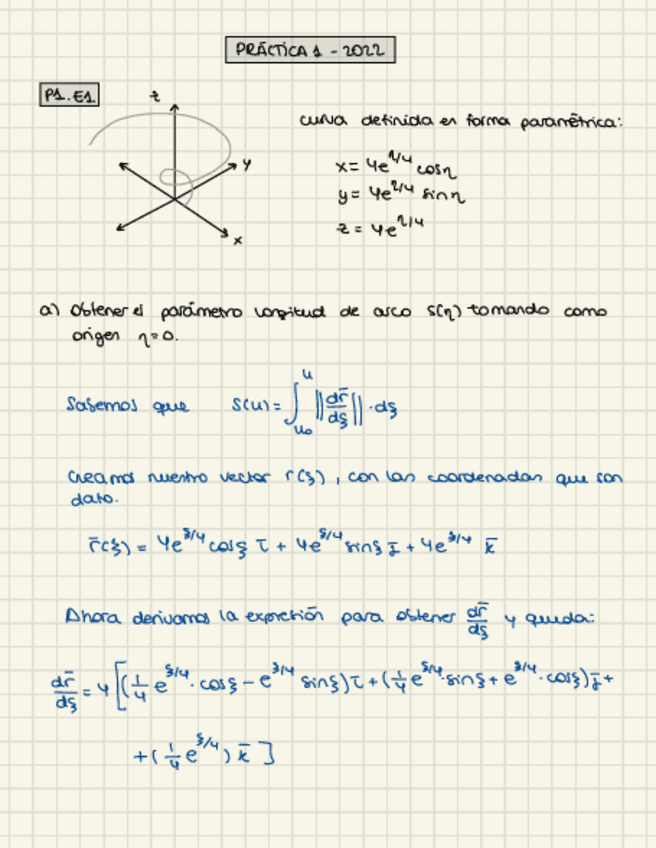 PRÁCTICA 1 - 2022
P1.E1
z
y
x
curva definida en forma paramétrica:
x = 4e^{η/4} cosη
y = 4e^{η/4} sinη
z = 4e^{η/4}
a) Obtener el parámetro longitud de arco s(η) tomando como
origen η=0.
Sabemos que s(u) = ∫_{u₀}^{u} ||dr̄/dξ|| · dξ
Creamos nuestro vector r(ξ), con las coordenadas que son
dato.
r̄(ξ) = 4e^{ξ/4} cosξ ī + 4e^{ξ/4} sinξ j̄ + 4e^{ξ/4} k̄
Ahora derivamos la expresión para obtener dr̄/dξ y queda:
dr̄/dξ = 4 [(1/4 e^{ξ/4} · cosξ - e^{ξ/4} sinξ) ī + (1/4 e^{ξ/4} · sinξ + e^{ξ/4} · cosξ) j̄ +
+ (1/4 e^{ξ/4}) k̄ ]